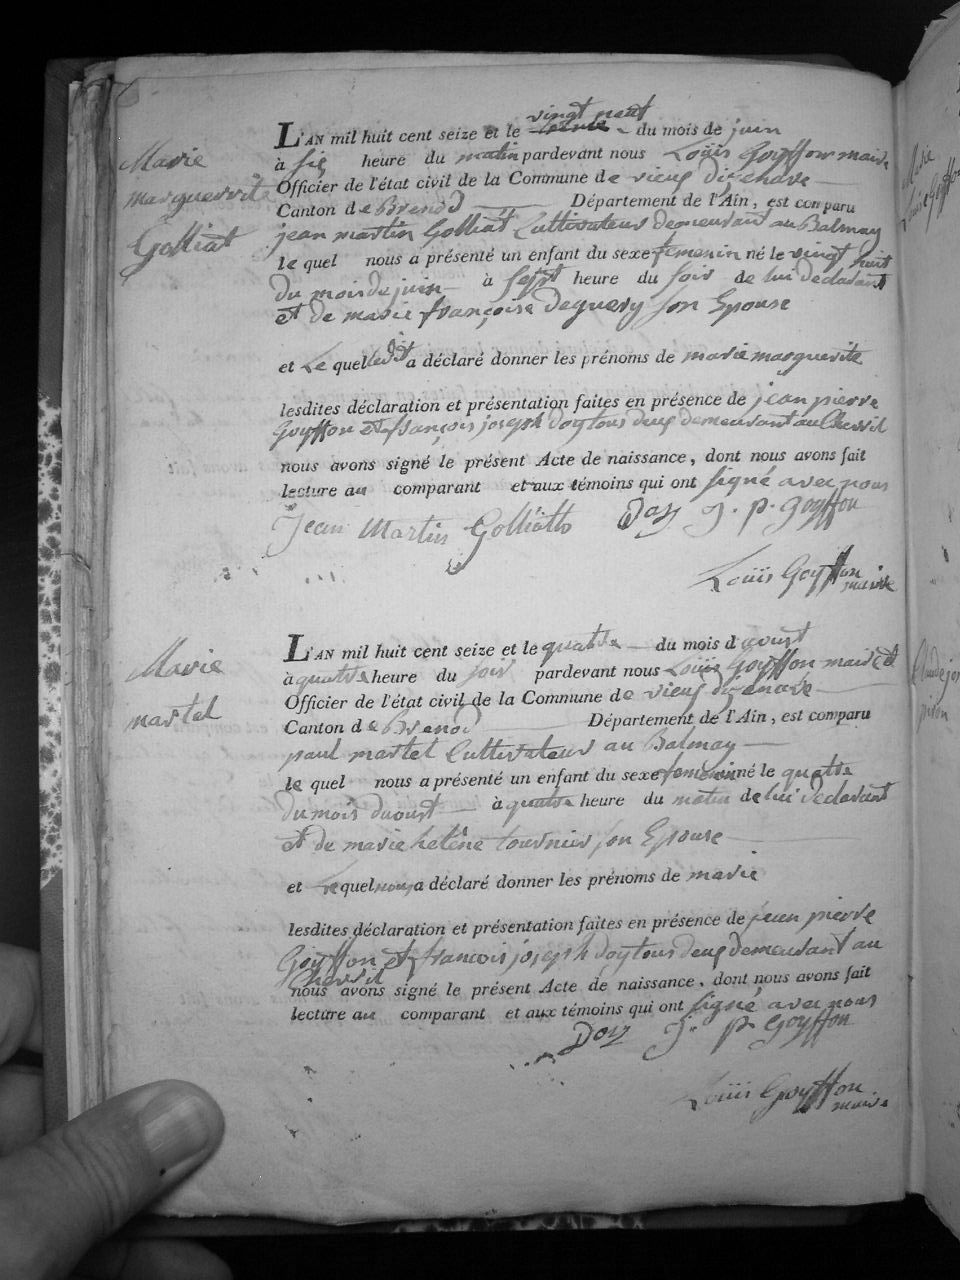 Marie
marguerite
Golliat
L'AN mil huit cent seize et le vingt neuf du mois de juin
à six heure du matin pardevant nous Loüis Goyffon maire
Officier de l'état civil de la Commune de vieux dizenave
Canton de Brenod Département de l'Ain, est comparu
jean martin Golliat Cultivateur demeurant au Balmay
le quel nous a présenté un enfant du sexe femenin né le vingt huit
du mois de juin à sept heure du soir de lui déclarant
et de marie françoise deguery son Epouse
et Le quel ledit a déclaré donner les prénoms de marie marguerite
lesdites déclaration et présentation faites en présence de jean pierre
Goyffon et françois joseph doy tous deux demeurant au Chevril
nous avons signé le présent Acte de naissance, dont nous avons fait
lecture au comparant et aux témoins qui ont signé avec nous
Jean Martin Golliath Doy J. p. goyffon
Loüis Goyffon
maire
Marie
martel
L'AN mil huit cent seize et le quatre du mois d'avoust
à quatre heure du soir pardevant nous Loüis Goyffon maire et
Officier de l'état civil de la Commune de vieux dizenave
Canton de Brenod Département de l'Ain, est comparu
paul martel Cultivateur au Balmay
le quel nous a présenté un enfant du sexe femenin né le quatre
du mois d'uoust à quatre heure du matin de lui déclarant
et de marie heléne tournier son Epouse
et Le quel nous a déclaré donner les prénoms de marie
lesdites déclaration et présentation faites en présence de jean pierre
Goyffon et françois joseph doy tous deux demeurant au
Chevril
nous avons signé le présent Acte de naissance, dont nous avons fait
lecture au comparant et aux témoins qui ont signé avec nous
Doy J. p. Goyffon
Loüis Goyffon
maire